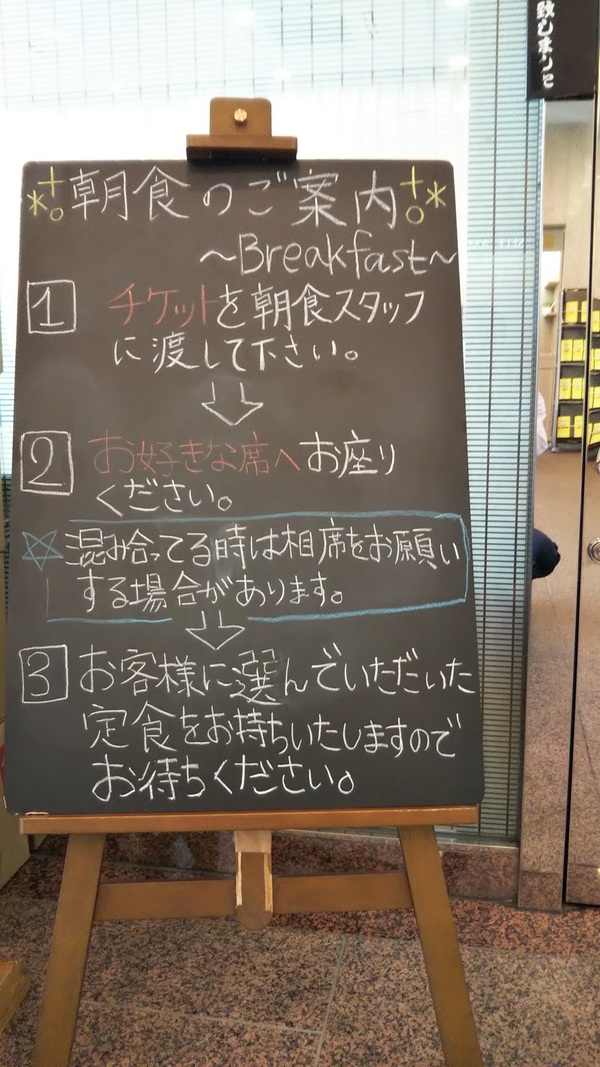 朝食のご案内
～Breakfast～
1 チケットを朝食スタッフ
に渡して下さい。
2 お好きな席へお座り
ください。
☆混み合ってる時は相席をお願い
する場合があります。
3 お客様に選んでいただいた
定食をお持ちいたしますので
お待ちください。
致しました